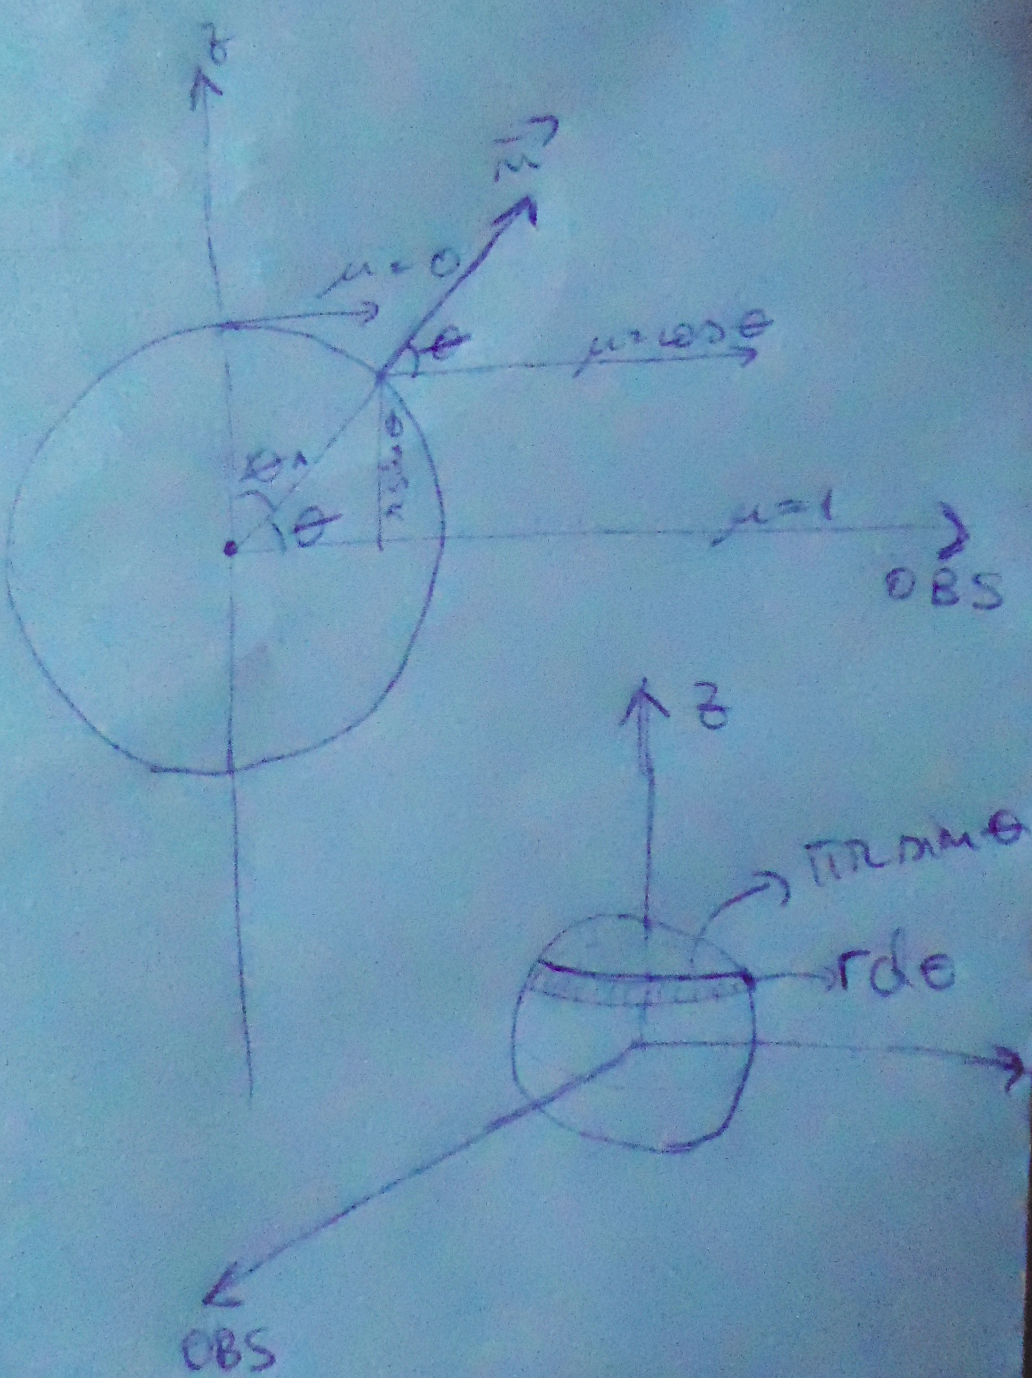 z
n⃗
μ=0
θ
μ=cosθ
r sinθ
θ
μ=1
OBS
z
πr sinθ
rdθ
OBS